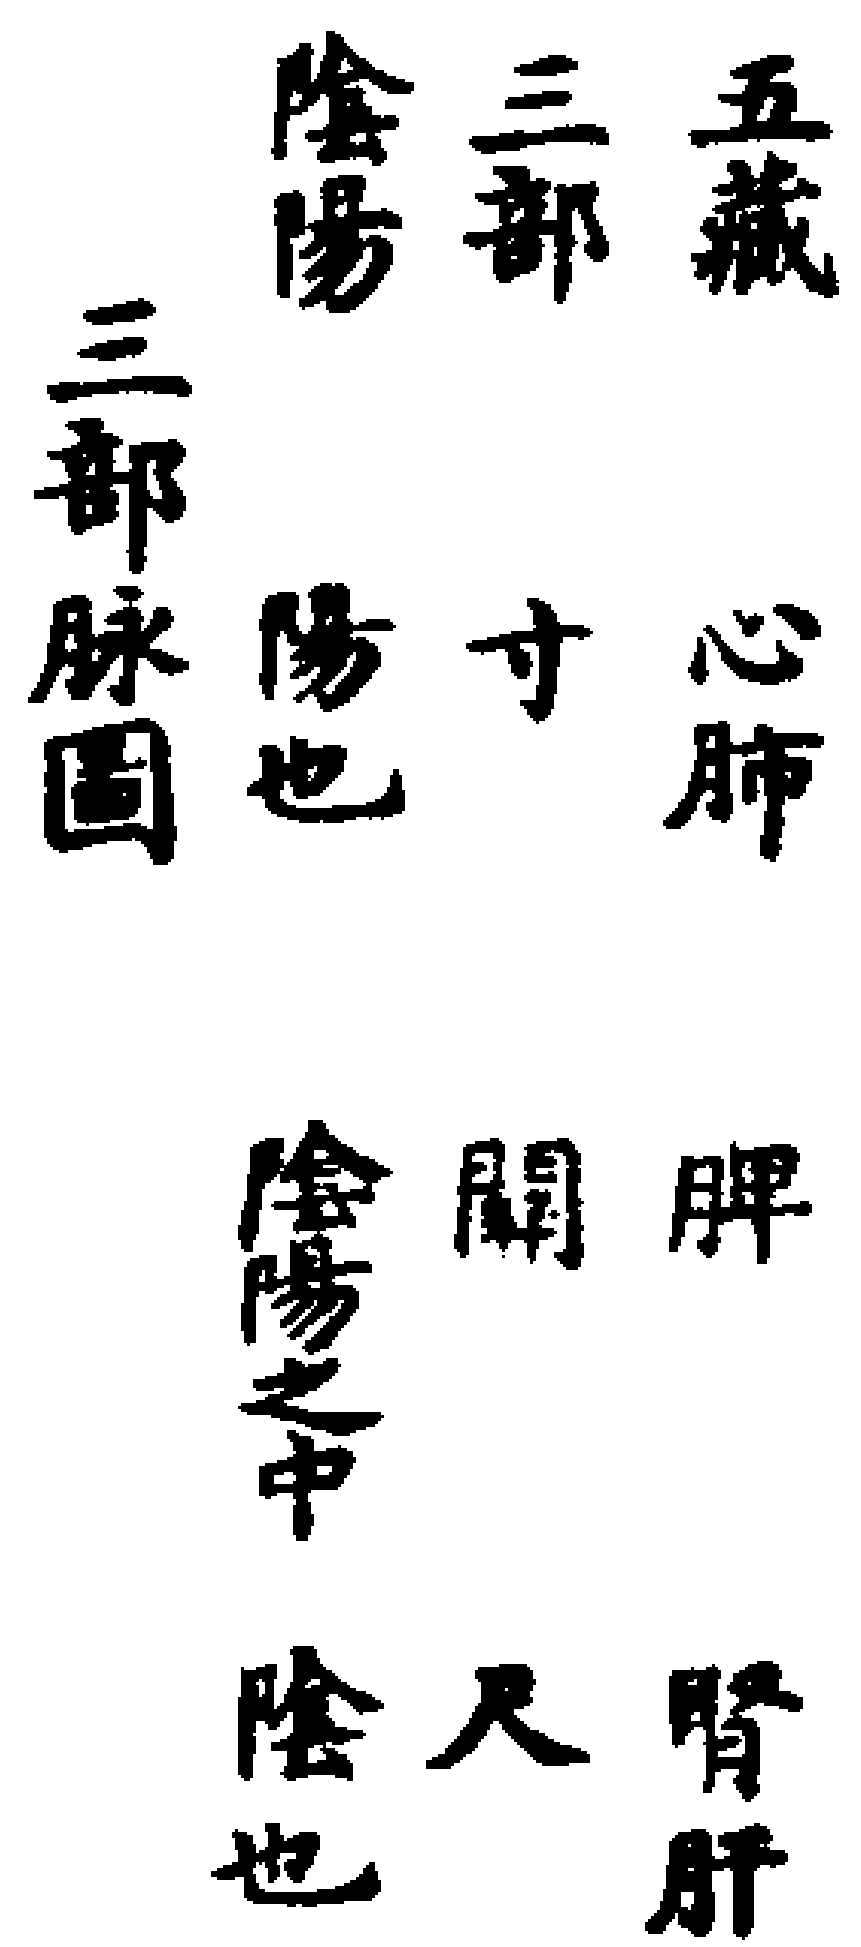 五藏 心肺 脾 腎肝
三部 寸 關 尺
陰陽 陽也 陰陽之中 陰也
三部脉圖